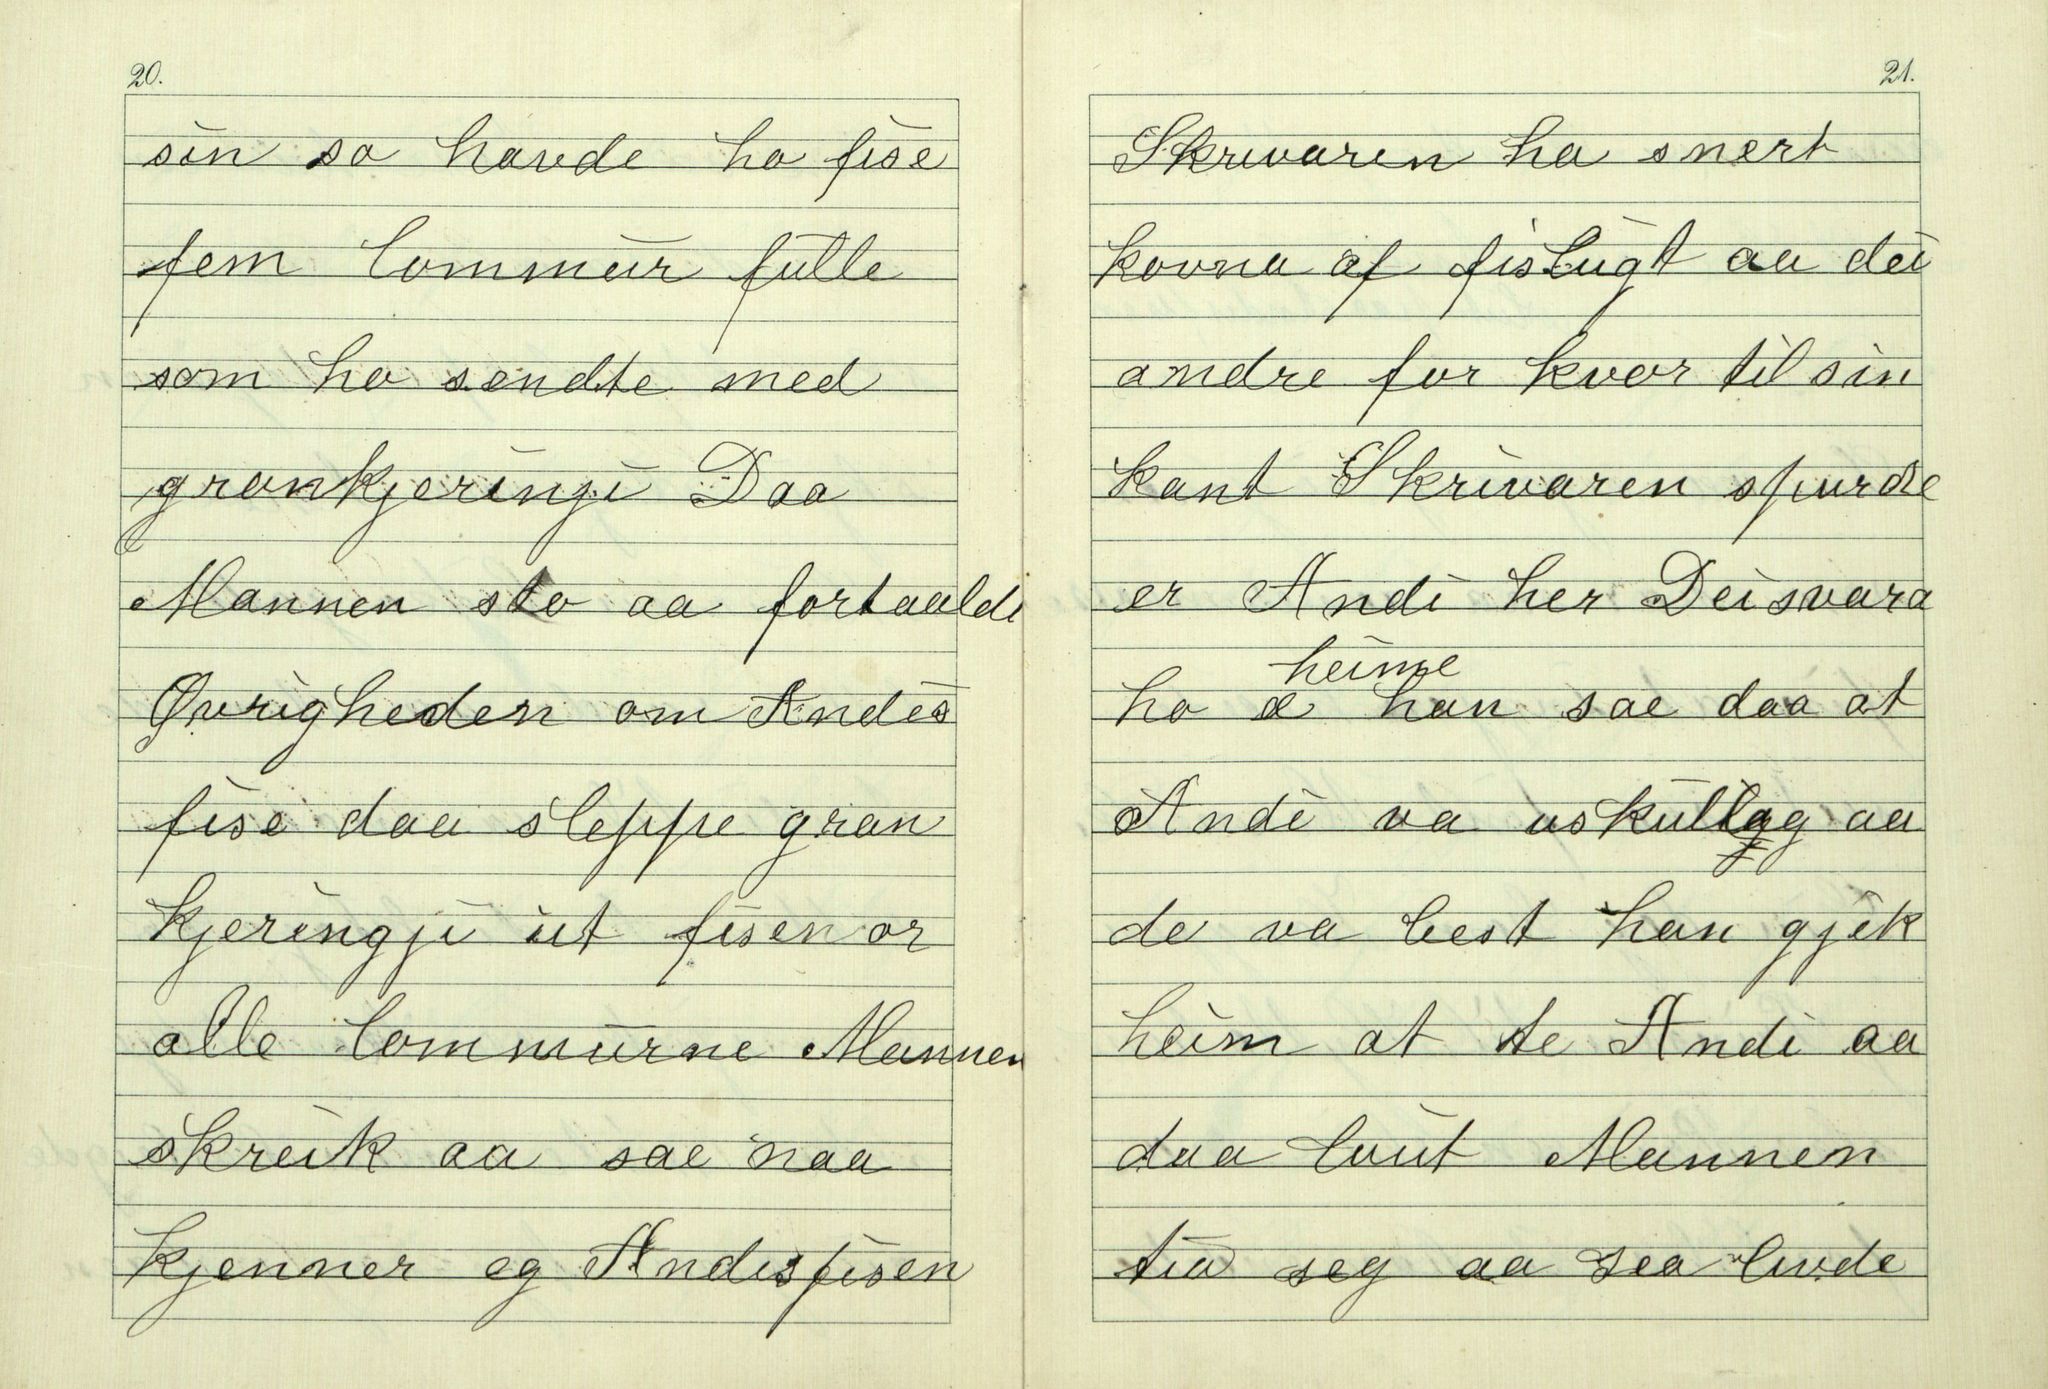 20.
sin so havde ho fise
fem lommur fulle
som ho sendte med
grankjeringi Daa
Mannen sto aa fortaalde
Øvrigheden om Andis
fise daa sleppe gran
kjeringji ut fisen or
alle lommurne Mannen
skreik aa sae naa
kjenner eg Andisfisen
21.
Skrivaren ha snert
kovna af fislugt aa dei
andre for kvar til sin
kant Skrivaren spurde
er Andi her Dei svara
heime
ho æ han sae daa at
Andi va uskullag aa
de va best han gjik
heim at te Andi aa
daa lout Mannen
tia seg aa sea livde